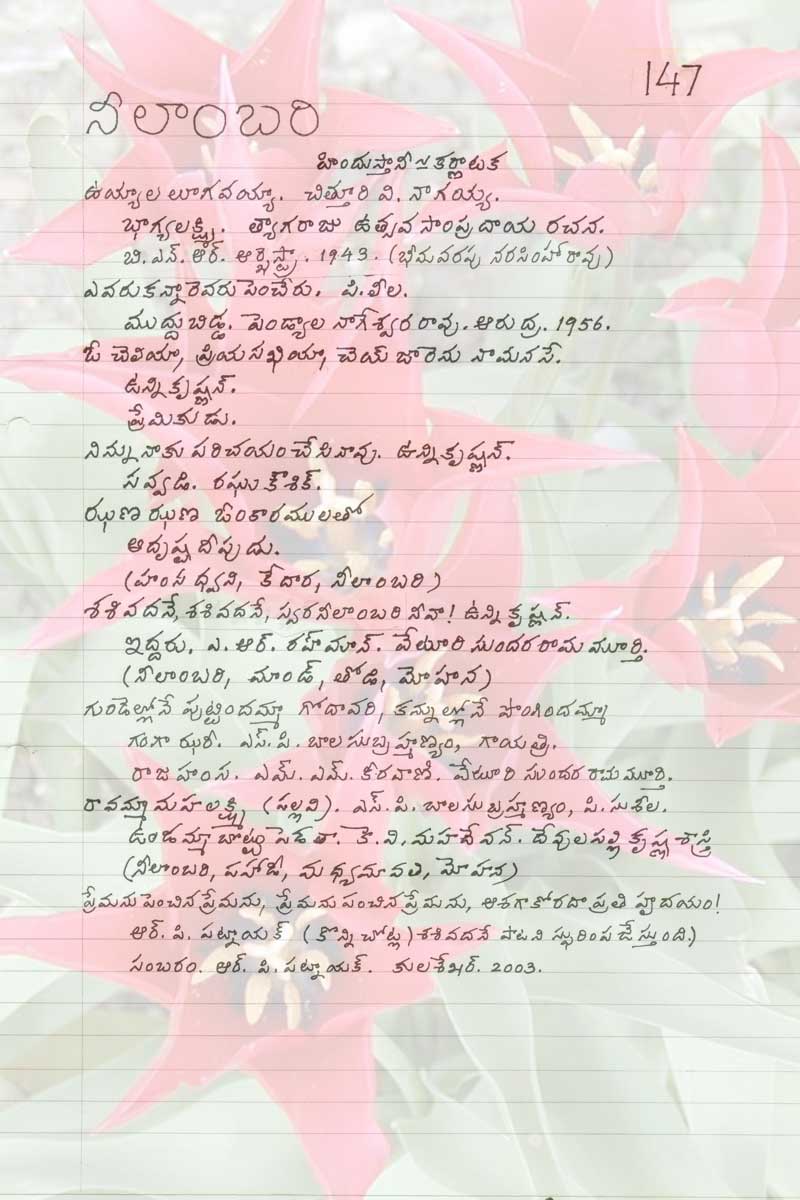 147
నీలాంబరి
హిందుస్తానీ ≃ కర్ణాటక
ఉయ్యాల లూగవయ్యా. చిత్తూరి వి. నాగయ్య.
భాగ్యలక్ష్మి. త్యాగరాజు ఉత్సవ సాంప్రదాయ రచన.
బి. ఎన్. ఆర్. ఆర్కెస్ట్రా. 1943. (భీమవరపు నరసింహారావు)
ఎవరుకన్నారెవరు పెంచేరు. పి. లీల.
ముద్దుబిడ్డ. పెండ్యాల నాగేశ్వర రావు. ఆరుద్ర. 1956.
ఓ చెలియా, ప్రియసఖియా, చెయ్ జారెను నా మనసే.
ఉన్నికృష్ణన్.
ప్రేమికుడు.
నిన్ను నాకు పరిచయం చేసినావు. ఉన్నికృష్ణన్.
సవ్వడి. రఘు కౌశిక్.
ఝణ ఝణ ఓంకారములతో
ఆదృష్ట దీపుడు.
(హంసధ్వని, కేదార, నీలాంబరి)
శశివదనే, శశివదనే, స్వరనీలాంబరి నీవా! ఉన్నికృష్ణన్.
ఇద్దరు. ఎ. ఆర్. రహ్మాన్. వేటూరి సుందరరామ మూర్తి.
(నీలాంబరి, మాండ్, తోడి, మోహన)
గుండెల్లోనే పుట్టిందమ్మా గోదావరి, కన్నుల్లోనే పొంగిందమ్మా
గంగా ఝరీ. ఎస్. పి. బాలసుబ్రహ్మణ్యం, గాయత్రి.
రాజహంస. ఎమ్. ఎమ్. కీరవాణి. వేటూరి సుందర రామ మూర్తి.
రావమ్మా మహలక్ష్మి (పల్లవి). ఎస్. పి. బాలసుబ్రహ్మణ్యం, పి. సుశీల.
ఉండమ్మా బొట్టు పెడతా. కె. వి. మహదేవన్. దేవులపల్లి కృష్ణ శాస్త్రి
(నీలాంబరి, పహాడీ, మధ్యమావతి, మోహన)
ప్రేమను పెంచిన ప్రేమను, ప్రేమను పంచిన ప్రేమను, ఆశగా కోరదా ప్రతి హృదయం!
ఆర్. పి. పట్నాయక్ (కొన్ని చోట్ల) శశివదనే పాటని స్ఫురింపజేస్తుంది.)
సంబరం. ఆర్. పి. పట్నాయక్. కులశేఖర్. 2003.